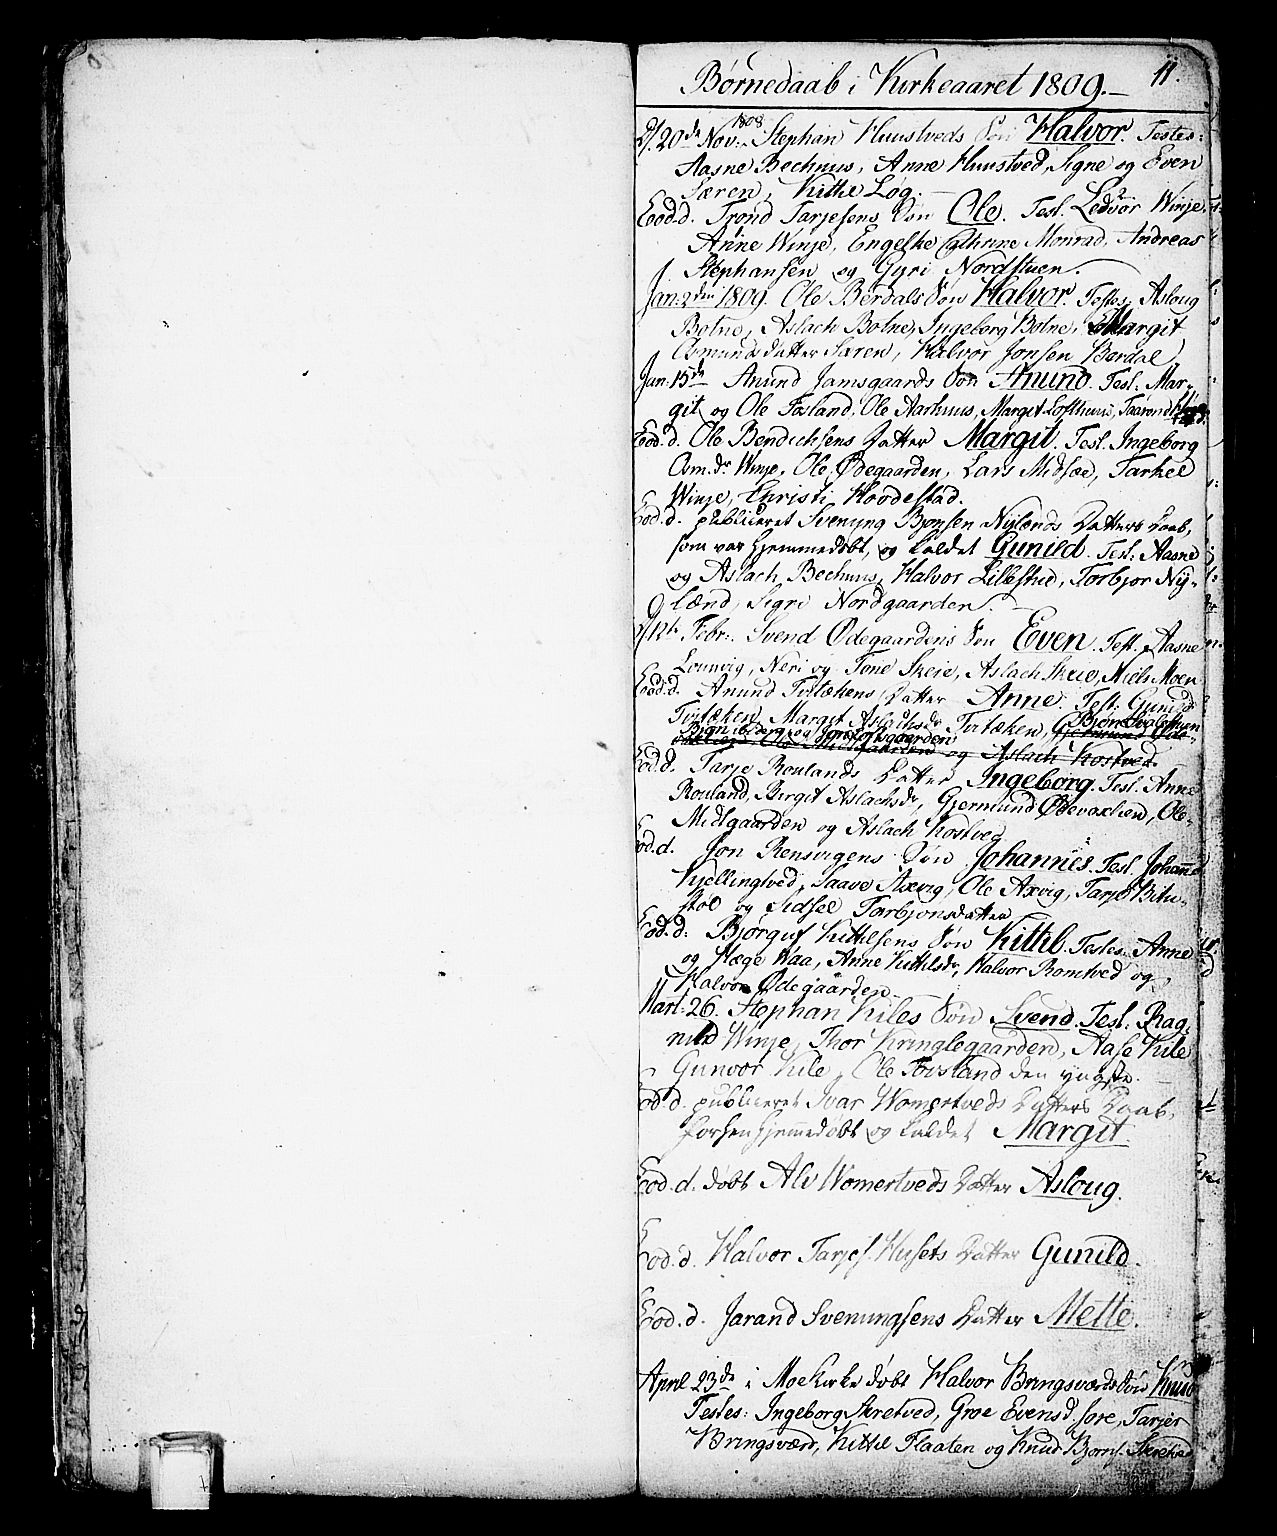 11.
Børnedaab i Kirkeaaret 1809.—
1808
20de Nov: Stephan Huustveds Søn Halvor. Testes:
Aasne Bechuus, Anne Huustved, Signe og Even
Særen, Kittil Løg.—
Eod. d. Trond Tarjesens Søn Ole. Test. Ledvor Winje,
Anne Winje, Engelke Cathrine Monrad, Andreas
Stephansen og Gyri Nordstuen.
Jan: 2den 1809. Ole Berdals Søn Halvor. Testes, Asloug
Botne, Aslach Botne, Ingeborg Botne, Margit
Asmundsdatter Særen, Halvor Jonsen Berdal
Jan: 15de Anund Jamsgaards Søn Anund. Test: Mar-
git og Ole Fosland, Ole Aarhuus, Margit Lofthuus, Taarand
Eod. d. Ole Bendichsens Datter Margit. Test. Ingeborg
Asm.dr Winje, Ole Ødegaarden, Lars Midsæe, Tarkel
Winje, Christi Hovdestad.
Eod. d. publiceret Svenung Bjønsen Nylænds Datters Daab,
som var hjemmedøbt, og kaldet Gunild. Test: Aasne
og Aslach Bechuus, Halvor Lillestued, Torbjor Ny-
lænd, Sigri Nordgaarden.—
12te Febr: Svend Ødegaardens Søn Even. Test. Aasne
Lounvig, Neri og Tone Skeie, Aslach Skeie, Niels Moen
Eod. d. Anund Tvitækens Datter Anne. Test: Gunild
Tvitæken, Margit Aslachsdr Tvitæken, Gjermund
Midgaarden og Aslach Kostved.
Eod. d. Tarje Roulands Datter Ingeborg. Test. Anne
Rouland, Birgit Aslachsdr, Gjermund Ødevaslien, Ole
Midgaarden og Aslach Kostved
Eod. d. Jon Rensvigens Søn Johannes. Test. Johannes
Kjellingtved, Saave Axvig, Ole Axvig, Tarje Bitu-
støl og Sidsel Torbjonsdatter
Eod. d. Bjørguf Kittilsens Søn Kittil. Testes. Anne
og Hæge Waa, Anne Kittilsdr, Halvor Romtved og
Halvor Ødegaarden
Mart: 26. Stephan Kiles Søn Svend. Test: Rag-
nild Winje, Thor Kringlegaarden, Aase Kile
Gunvor Kile, Ole Tovsland den yngste.
Eod. d. publiceret Ivar Womertveds Datters Daab,
forhen hjemmedøbt og kaldet Margit.
Eod. d. døbt Alv Womertveds Datter Asloug.
Eod. d. Halvor Tarjes. Husets Datter Gunild.
Eod. d. Jarand Svenungsens Datter Mette.
April 23de i Moe Kirke døbt Halvor Bringsværds Søn Knud
Testes: Ingeborg Skretved, Groe Evensd. Jore, Tarjer
Bringsværd, Kittil Flaaten og Knud Bjørns. Skretved